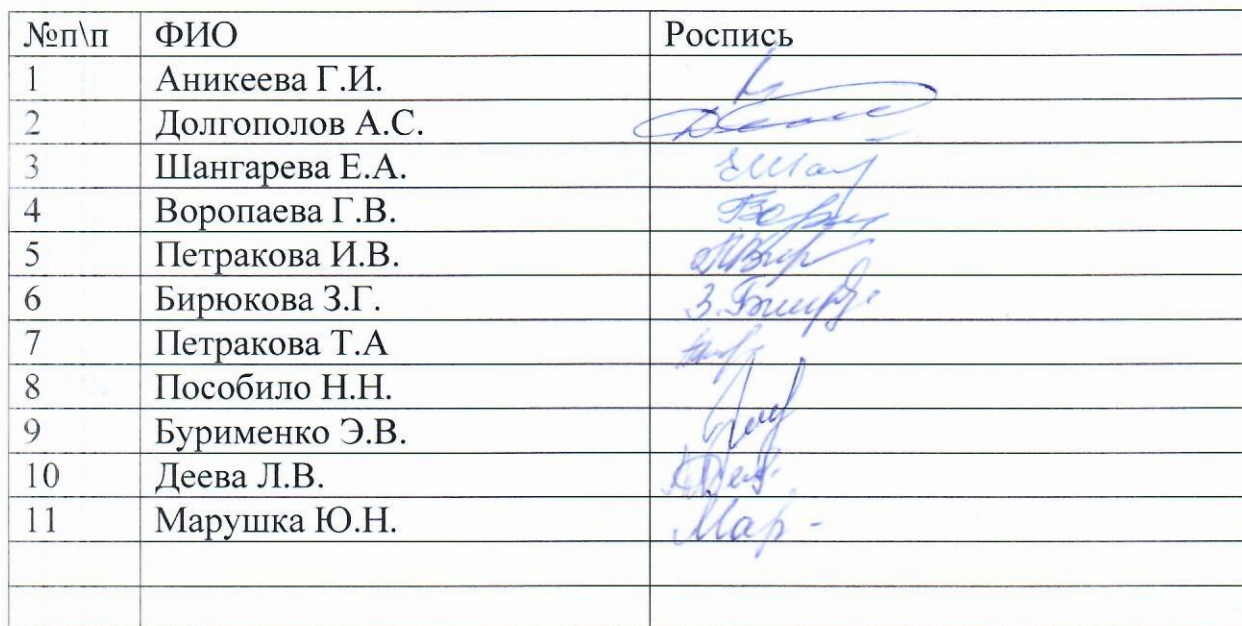 №п\п ФИО Роспись
1 Аникеева Г.И.
2 Долгополов А.С.
3 Шангарева Е.А.
4 Воропаева Г.В.
5 Петракова И.В.
6 Бирюкова З.Г.
7 Петракова Т.А
8 Пособило Н.Н.
9 Бурименко Э.В.
10 Деева Л.В.
11 Марушка Ю.Н. Мар-